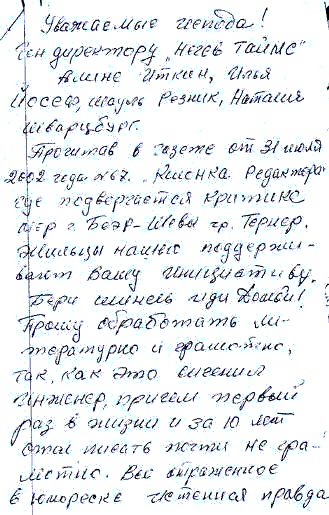 Уважаемые господа!
Ген директору „Негев Таймс"
Алине Иткин, Илья
Йосеф, Шауль Резник, Наталия
Шварцбург.
Прочитав в газете от 31 июля
2002 года №67. „Колонка Редактора
где подвергается критике
мэр г. Беэр-Шевы гр. Тернер.
Жильцы наши поддержи-
вают Вашу инициативу.
Бери шинель иди домой!
Прошу обработать ли-
тературно и грамотно,
так, как это сочинил
инженер, причем первый
раз в жизни и за 10 лет
стал писать почти не гра-
мотно. Всё отраженное
в юмореске истенная правда